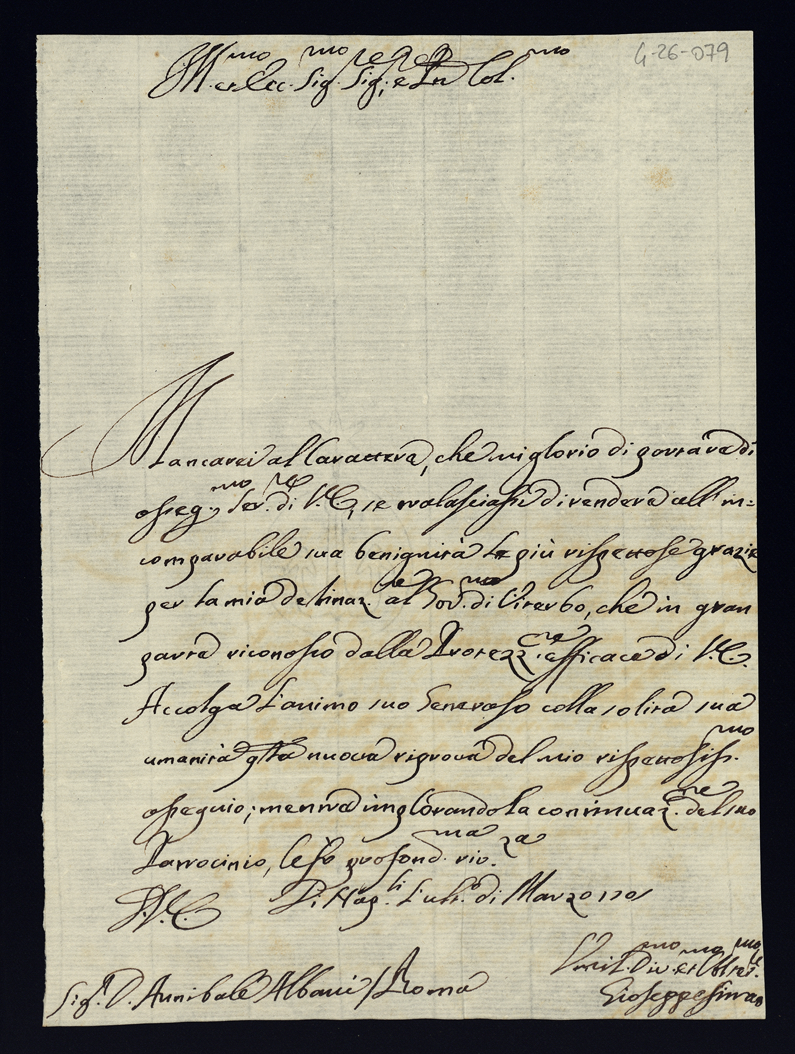 G-26-079
Ill.mo et Ecc.mo Sig.re Sig.re e Pn Col.mo
Mancarei al Carattere, che mi glorio di portare di
osseq.mo Ser.re di V.E., se tralasciassi di rendere all' in=
comparabile sua benignità le più rispettose grazie
per la mia destinaz.ne al Gov.no di Viterbo, che in gran
parte riconosco dalla Protezz.ne efficace di V.E.
Accolga l'animo suo Generoso colla solita sua
umanità q.sta nuova riprova del mio rispettosiss.mo
ossequio; mentre implorando la continuaz.ne del suo
Patrocinio, le fo profond.ma riv.za
D.V.E. Di Nap.li l'ult.o di Marzo 1701
Umil.mo Div.mo et Obl.mo
Sig.r D. Annibale Albani / Roma
Gioseppe